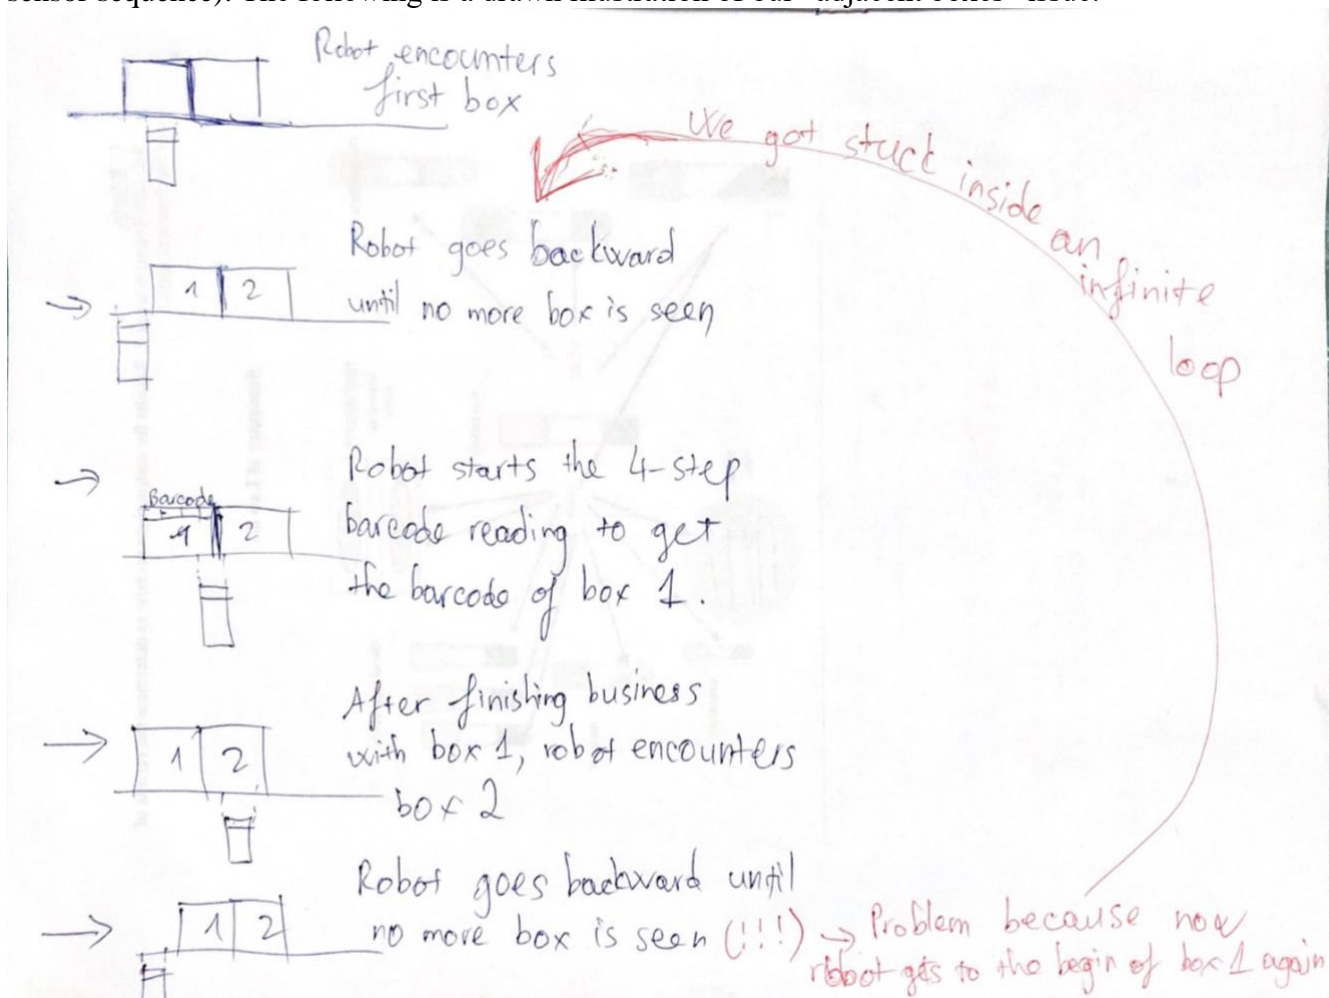 sensor sequence). The following is a drawn illustration of our "adjacent boxes" issue:
Robot encounters
first box
We got stuck inside an infinite loop
Robot goes backward
until no more box is seen
1 2
Robot starts the 4-step
barcode reading to get
the barcode of box 1.
Barcode
1 2
After finishing business
with box 1, robot encounters
box 2
1 2
Robot goes backward until
no more box is seen (!!!) → Problem because now
robot gets to the begin of box 1 again
1 2